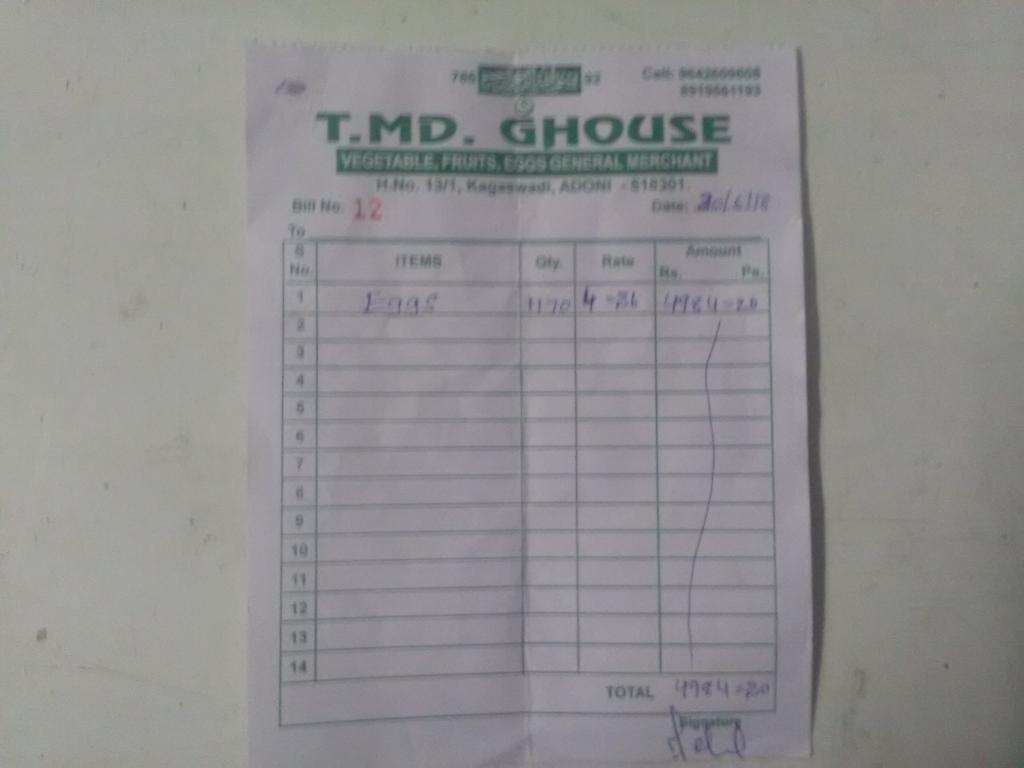 786 92
Cell:
8919561193
T.MD. GHOUSE
VEGETABLE, FRUITS, EGGS GENERAL MERCHANT
H.No. 13/1, Kagaswadi, ADONI - 518301.
Bill No. 12 Date: 20/6/18
To
S No. ITEMS Qty. Rate Amount Rs. Ps.
1 Eggs 1170 4=26 4984=20
2
3
4
5
6
7
8
9
10
11
12
13
14
TOTAL 4984=20
Signature